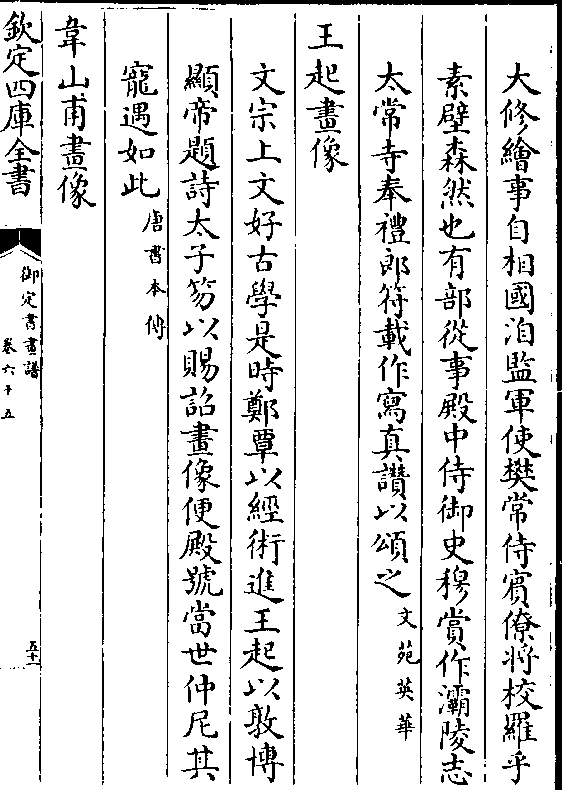 大修繪事自相國洎監軍使樊常侍賓僚將校羅乎
素壁森然也有部從事殿中侍御史穆賞作灞陵志
太常寺奉禮郎符載作寫真讚以頌之文苑英華
王起畫像
文宗上文好古學是時鄭覃以經術進王起以敦博
顯帝題詩太子笏以賜詔畫像便殿號當世仲尼其
寵遇如此唐書本傳
韋山甫畫像
欽定四庫全書
御定書畫譜
卷六十五
五十一